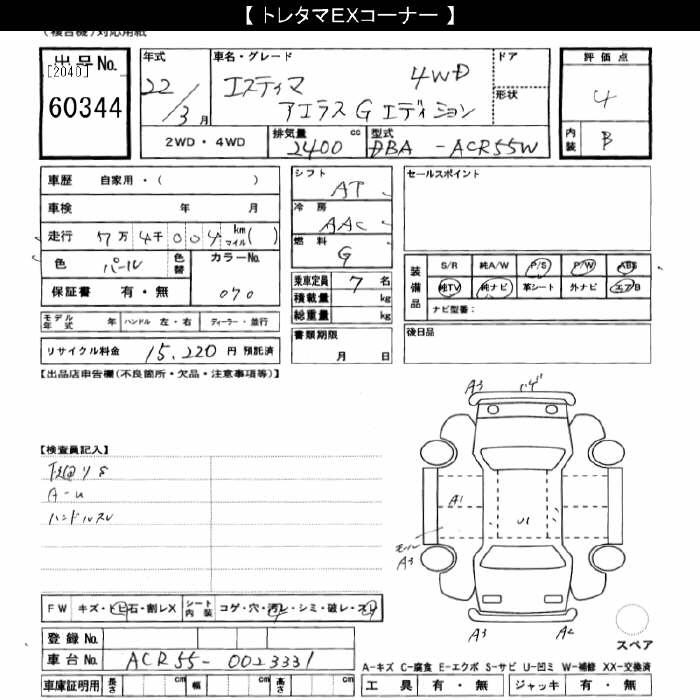 【 トレタマEXコーナー 】
(複合機)対応用紙
出品No.
[2040]
60344
年式
22 / 3 月
車名・グレード
エスティマ 4WD
アエラス G エディション
ドア
形状
2WD・4WD
排気量 cc
2400
型式
DBA - ACR55W
評価点
4
内装 B
車歴 自家用・( )
車検 年 月
走行 7万 4千 0 0 4 km マイル( )
色 パール 色替
カラーNo.
070
保証書 有・無
モデル年式 年 ハンドル 左・右 ディーラー・並行
リサイクル料金 15,220 円 預託済
シフト
AT
冷房
AAC
燃料
G
乗車定員 7 名
積載量 kg
総重量 kg
書類期限
月 日
セールスポイント
装備品
S/R 純A/W P/S P/W ABS
純TV 純ナビ 革シート 外ナビ エアB
ナビ型番:
後日品
【出品店申告欄(不良箇所・欠品・注意事項等)】
【検査員記入】
A-u
ハンドルスレ
A3
A1
U1
モール
A3
A3
A2
スペア
FW キズ・トビ石・割レX
シート内装 コゲ・穴・汚レ・シミ・破レ・スレ
登録No.
車台No. ACR55-0023331
車庫証明用 長さ cm 幅 cm 高さ cm
A-キズ C-腐食 E-エクボ S-サビ U-凹ミ W-補修 XX-交換済
工具 有・無 ジャッキ 有・無